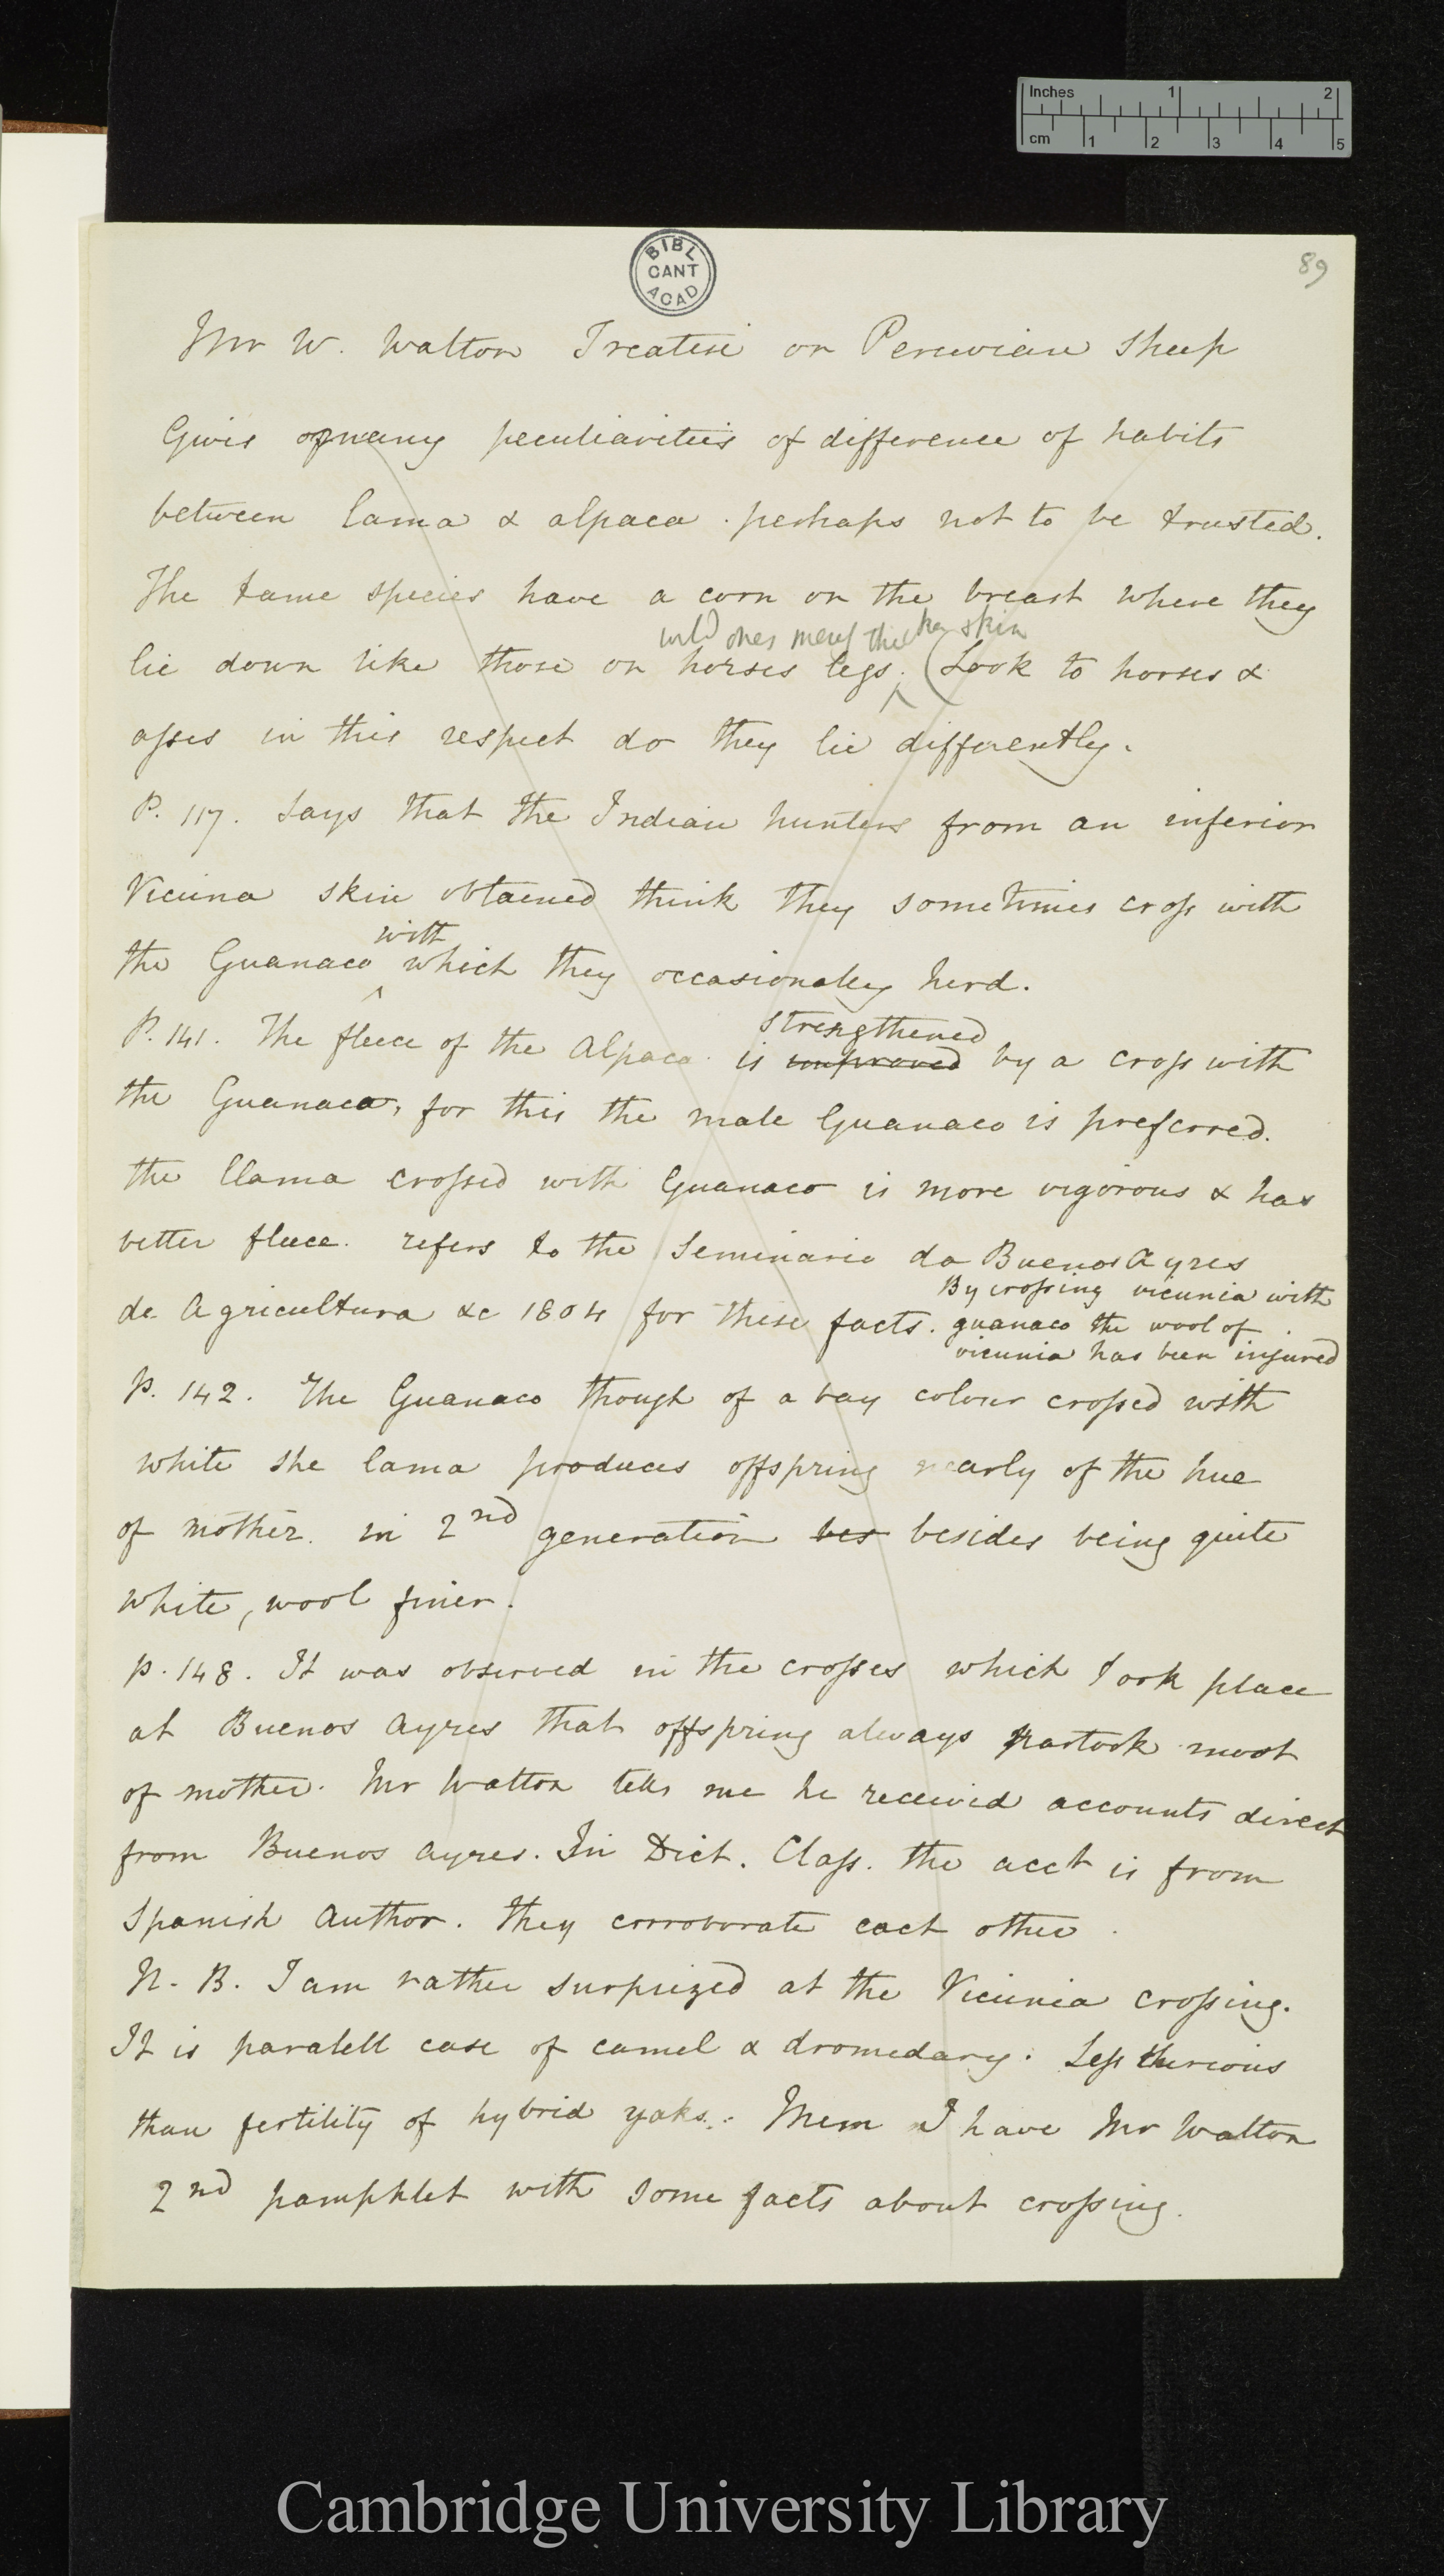 Inches 1 2
cm 1 2 3 4 5
BIBL
CANT
ACAD
89
Mr W. Walton Treatise on Peruvian Sheep
Gives many peculiarities of difference of habits
between lama & alpaca. perhaps not to be trusted.
The tame species have a corn on the breast where they
wild ones merely thicker skin
lie down like those on horses legs. (Look to horses &
asses in this respect do they lie differently.
P. 117. Says that the Indian hunters from an inferior
Vicuna skin obtained think they sometimes cross with
with
the Guanaco which they occasionaly herd.
strengthened
P. 141. The fleece of the Alpaca is improved by a cross with
the Guanaco, for this the male Guanaco is preferred.
the llama crossed with Guanaco is more vigorous & has
better fleece. refers to the Seminario do Buenos Ayres
By crossing vicunia with
de Agricultura &c 1804 for these facts. guanaco the wool of
vicunia has been injured
p. 142. The Guanaco though of a bay colour crossed with
white she lama produces offspring nearly of the hue
of mother. in 2nd generation bes besides being quite
white, wool finer.
p. 148. It was observed in the crosses which took place
at Buenos Ayres that offspring always partook most
of mother. Mr Walton tells me he received accounts direct
from Buenos Ayres. In Dict. Class. the acct is from
Spanish Author. They corroborate each other.
N. B. I am rather surprized at the Vicunia crossing.
It is paralell case of camel & dromedary. Less
than fertility of hybrid yaks. Mem I have Mr Walton
2nd pamphlet with some facts about crossing.
Cambridge University Library